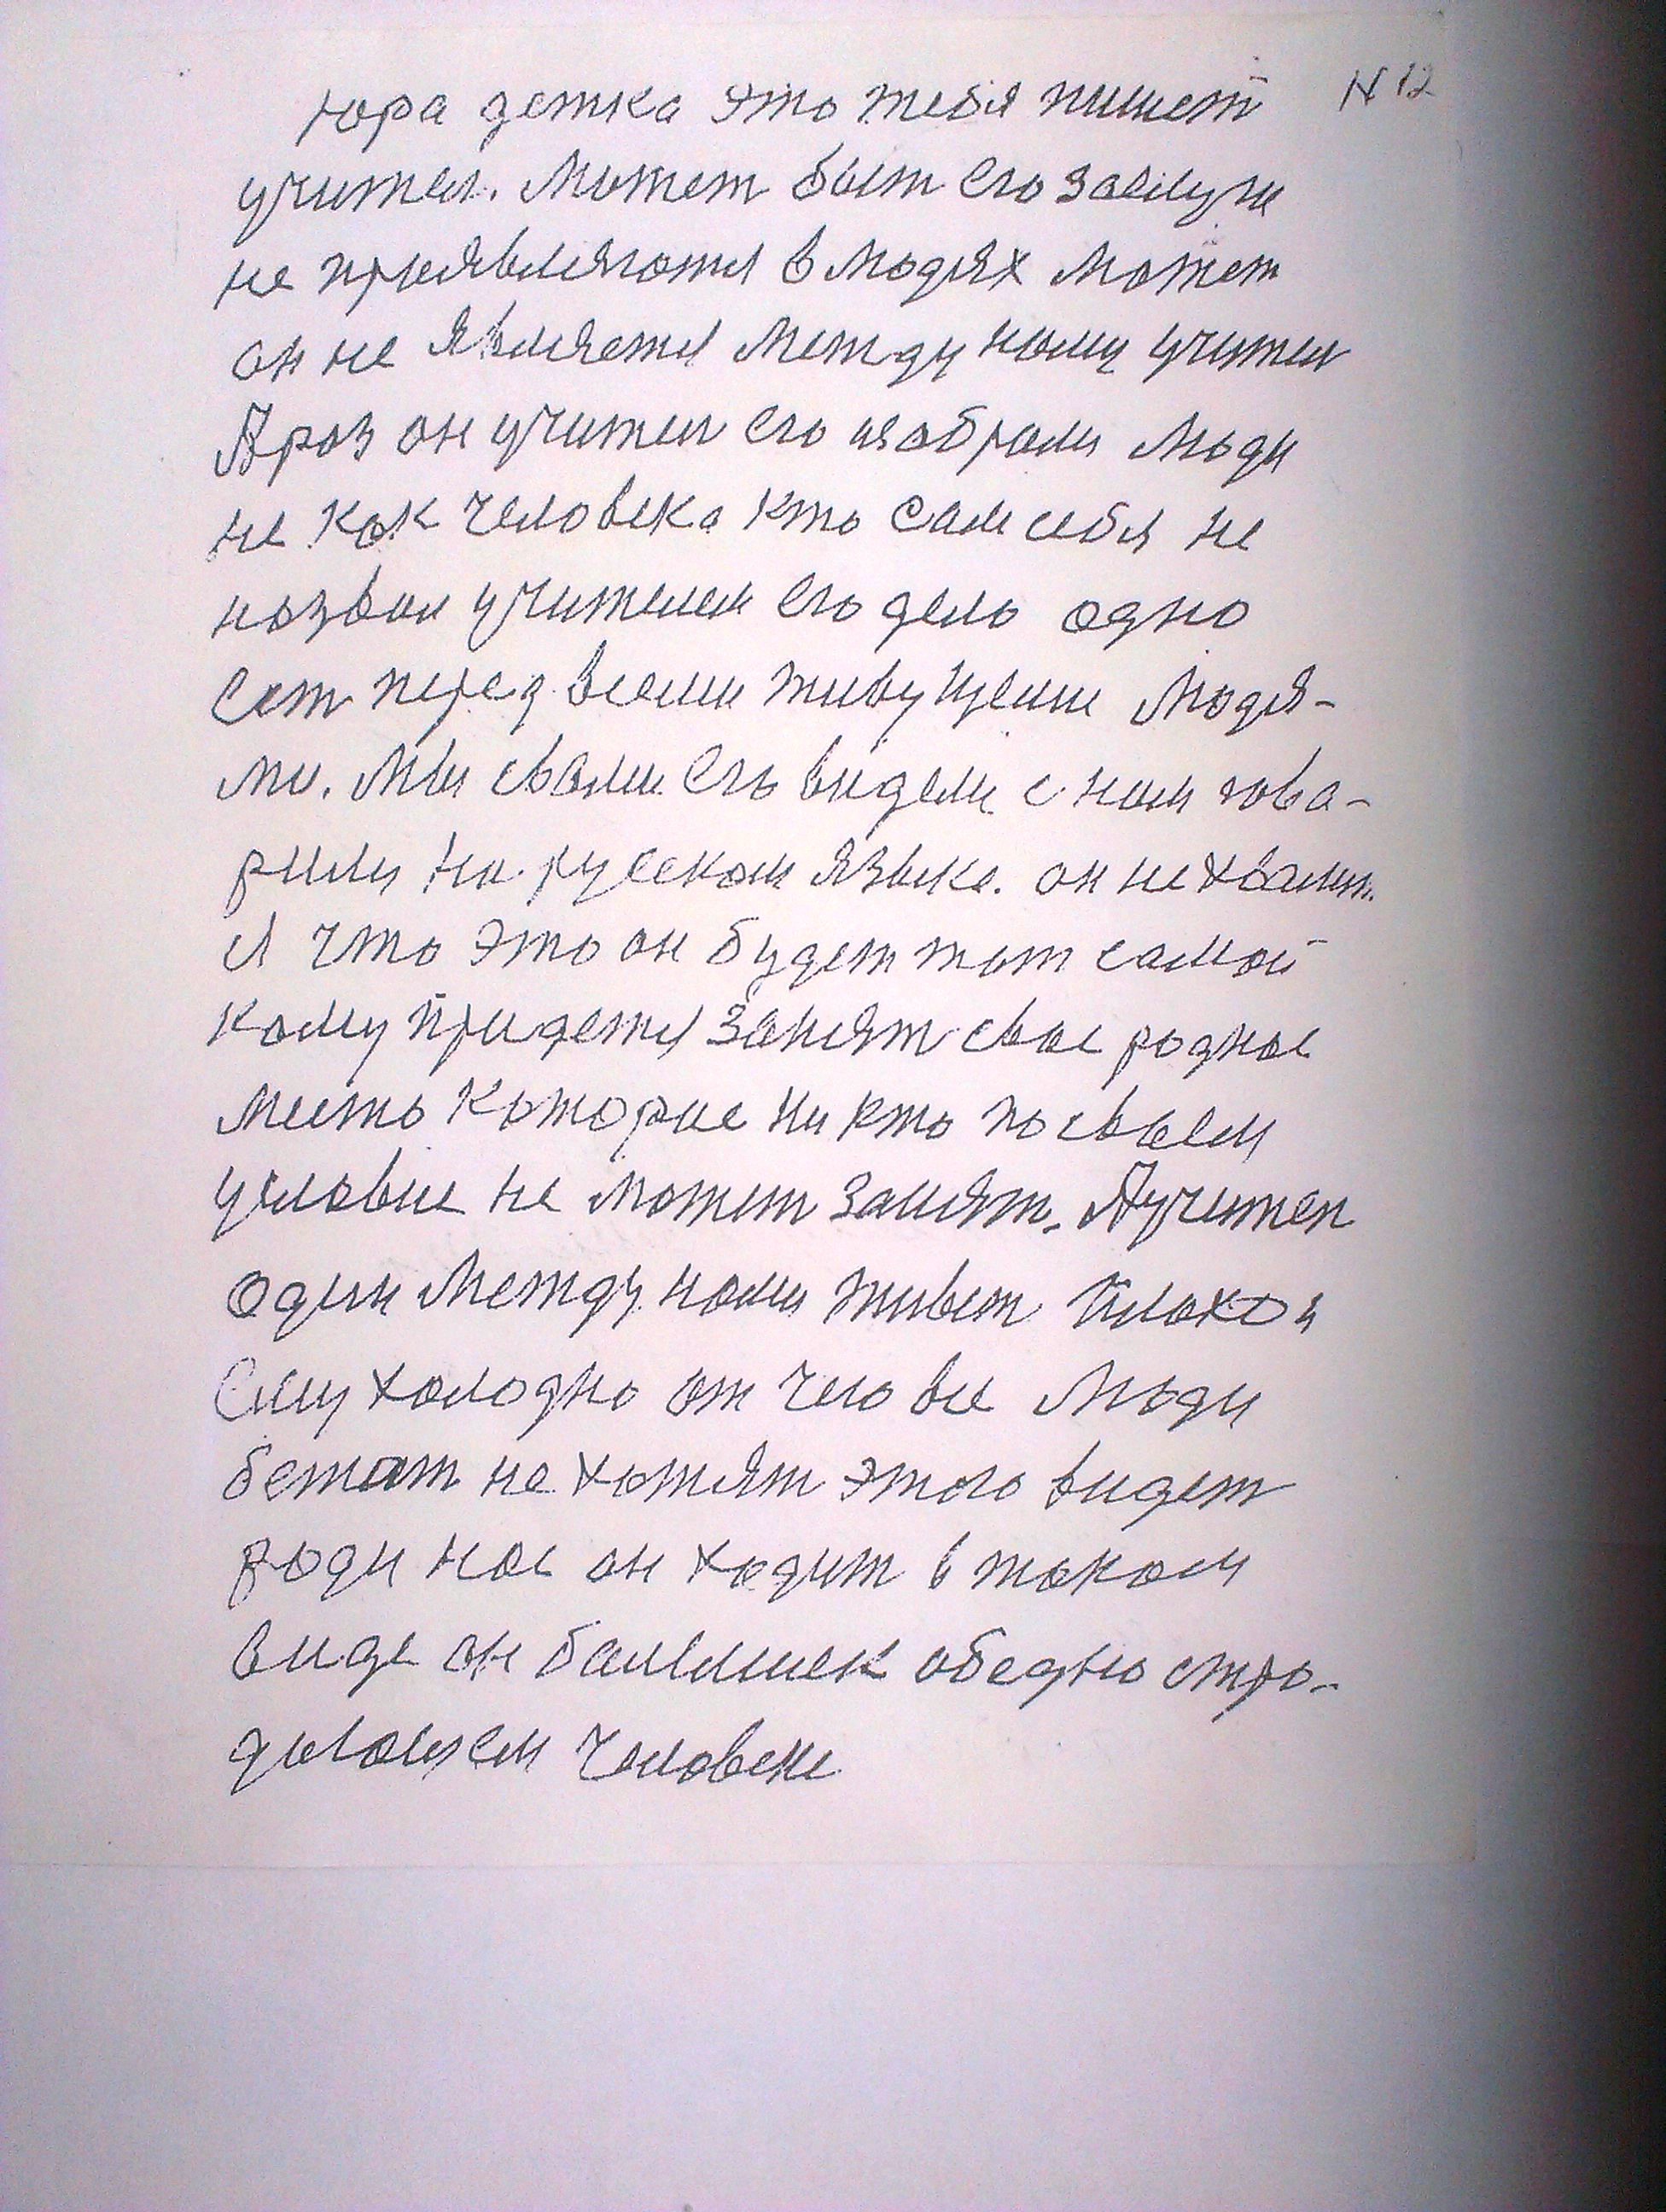 Юра детка это тебя пишет N 12
учител. Может быт его заслуги
не проявляются в людях может
он не является между нами учител
А раз он учител его избрали люди
не как человека кто сам себя не
назвал учителем его дело одно
ест перед всеми живущеми людя-
ми. Мы свами его видели с ним гова-
рили на русском языке. он не хвалит.
ся что это он будет тот самой
кому придется занят свое родное
место которае ни кто по своем
условие не может занят. А учител
один между нами живет плохо и
ему холодно от чего все люди
бежат не хотят этого видет
ради нас он ходит в таком
виде он обедно стра-
человеке